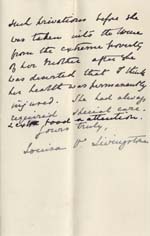 such privations before she
was taken into the House
from the extreme poverty
of her Mother after she
was deserted that I think
her health was permanently
injured. She had always
required special care.
extra food & attention.
Yours truly,
Louisa O. Livingstone